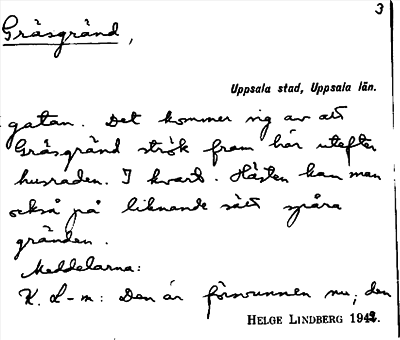 3
Gräsgränd,
Uppsala stad, Uppsala län.
gatan. Det kommer sig av att
Gräsgränd strök fram här utefter
husraden. I kvart. Hästen kan man
också på liknande sätt spåra
gränden.
Meddelarna:
K. L-m: Den är försvunnen nu, den
HELGE LINDBERG 1942.